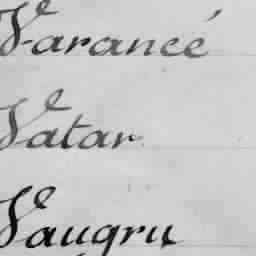 Varancé
Vatar
Vaugru